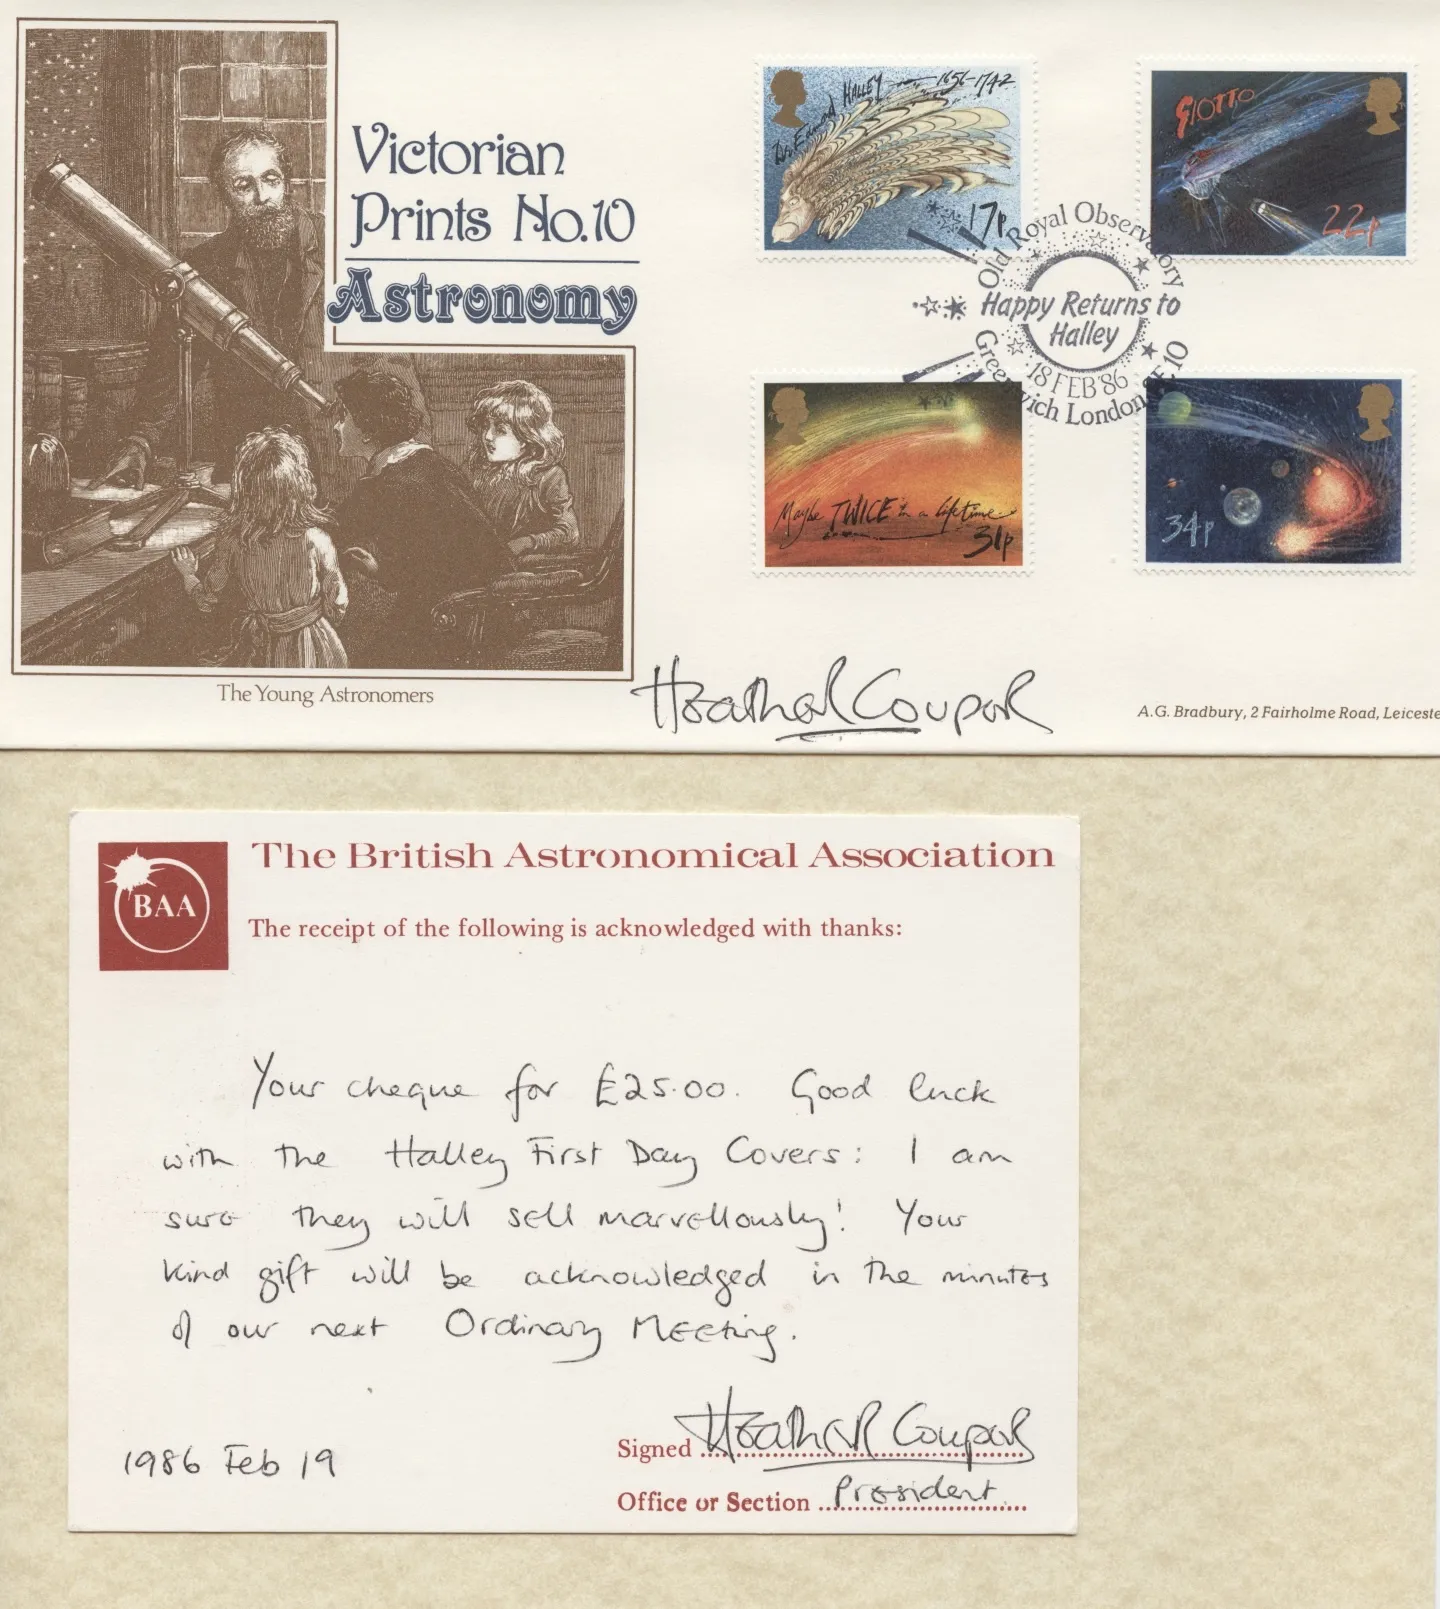 Victorian
Prints No.10
Astronomy
The Young Astronomers
Dr Edmond HALLEY 1656-1742
17p
GIOTTO
22p
Maybe TWICE in a lifetime
31p
34p
Old Royal Observatory
Happy Returns to
Halley
18 FEB '86
Greenwich London SE10
Heather Couper
A.G. Bradbury, 2 Fairholme Road, Leiceste
BAA
The British Astronomical Association
The receipt of the following is acknowledged with thanks:
Your cheque for £25.00. Good luck
with the Halley First Day Covers: I am
sure they will sell marvellously! Your
kind gift will be acknowledged in the minutes
of our next Ordinary Meeting.
Signed Heather Couper
1986 Feb 19
Office or Section President